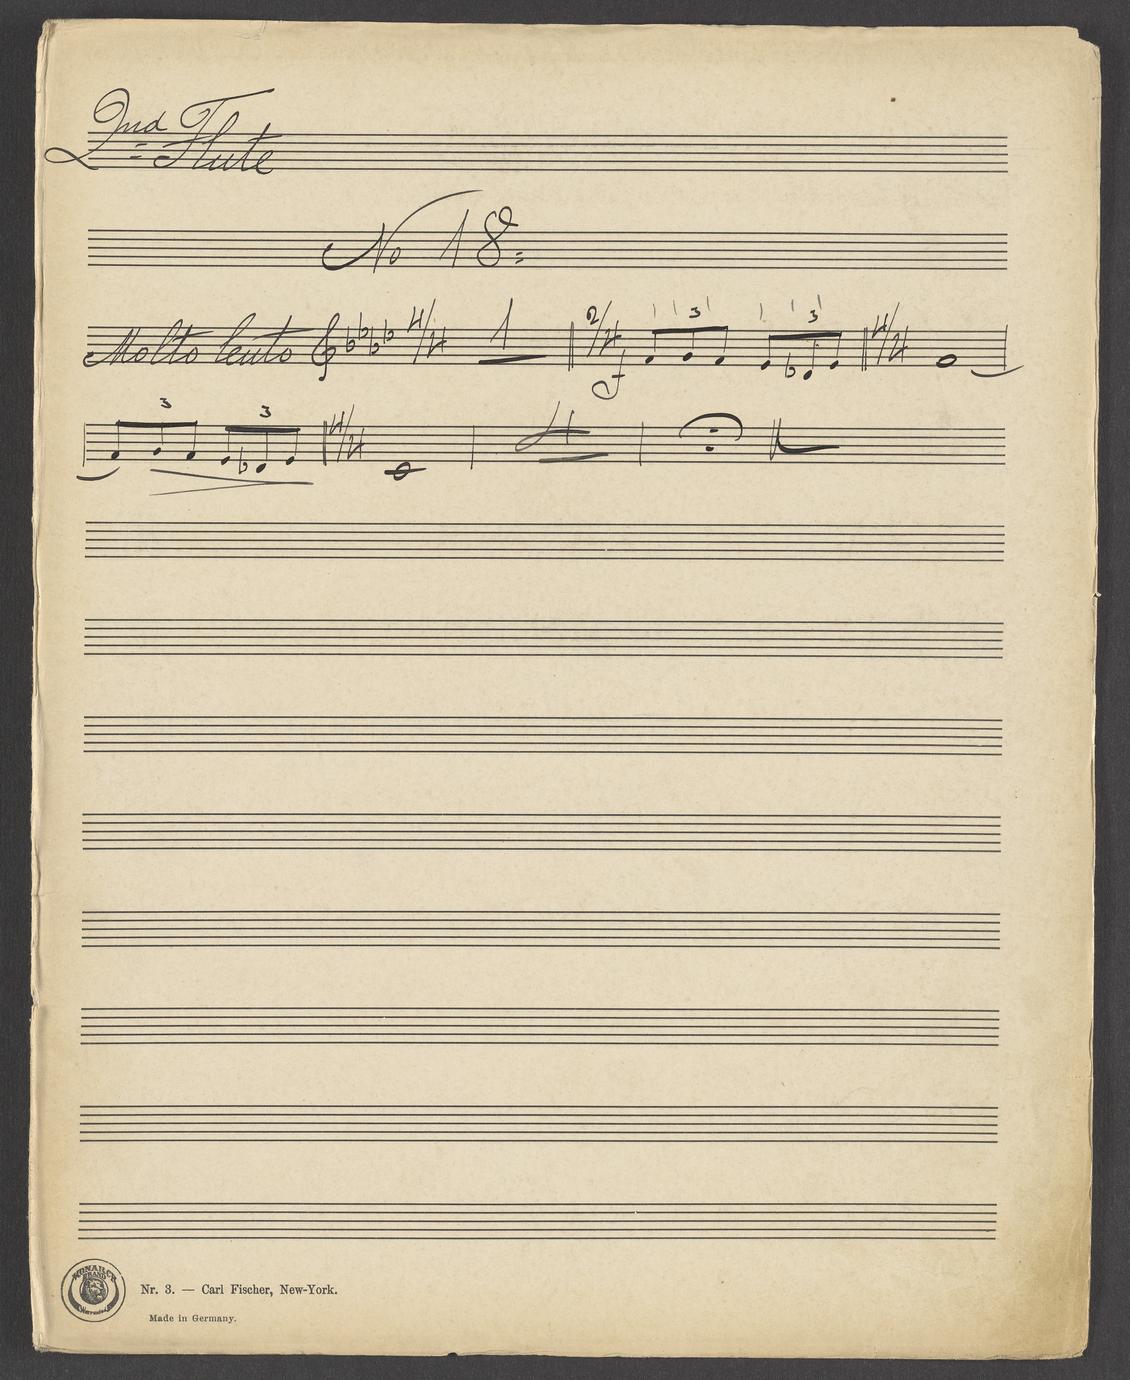 2nd Flute
No 18
Molto lento 4/4 1 2/4 f 3 3 4/4
3 3 4/4 4
MONARCH
BRAND
Nr. 3. — Carl Fischer, New-York.
Made in Germany.